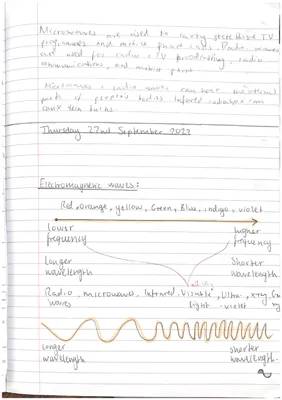 Microwaves are used to carry satellite TV
programmes and mobile phone calls. Radio waves
are used for radio + TV broadcasting, radio
communications, and mobile phone
Microwaves + radio waves can heat internal
parts of people's bodies. Infared radiation can
cause skin burns.
Thursday 22nd September 2022
Electromagnetic waves:
Red, orange, yellow, Green, Blue, indigo, violet
lower higher
frequency frequency
Longer Shorter
wavelength wavelength
Radio, microwaves, Infrared, Visable, Ultra-, x-ray,
waves light -violet
longer shorter
wavelength wavelength